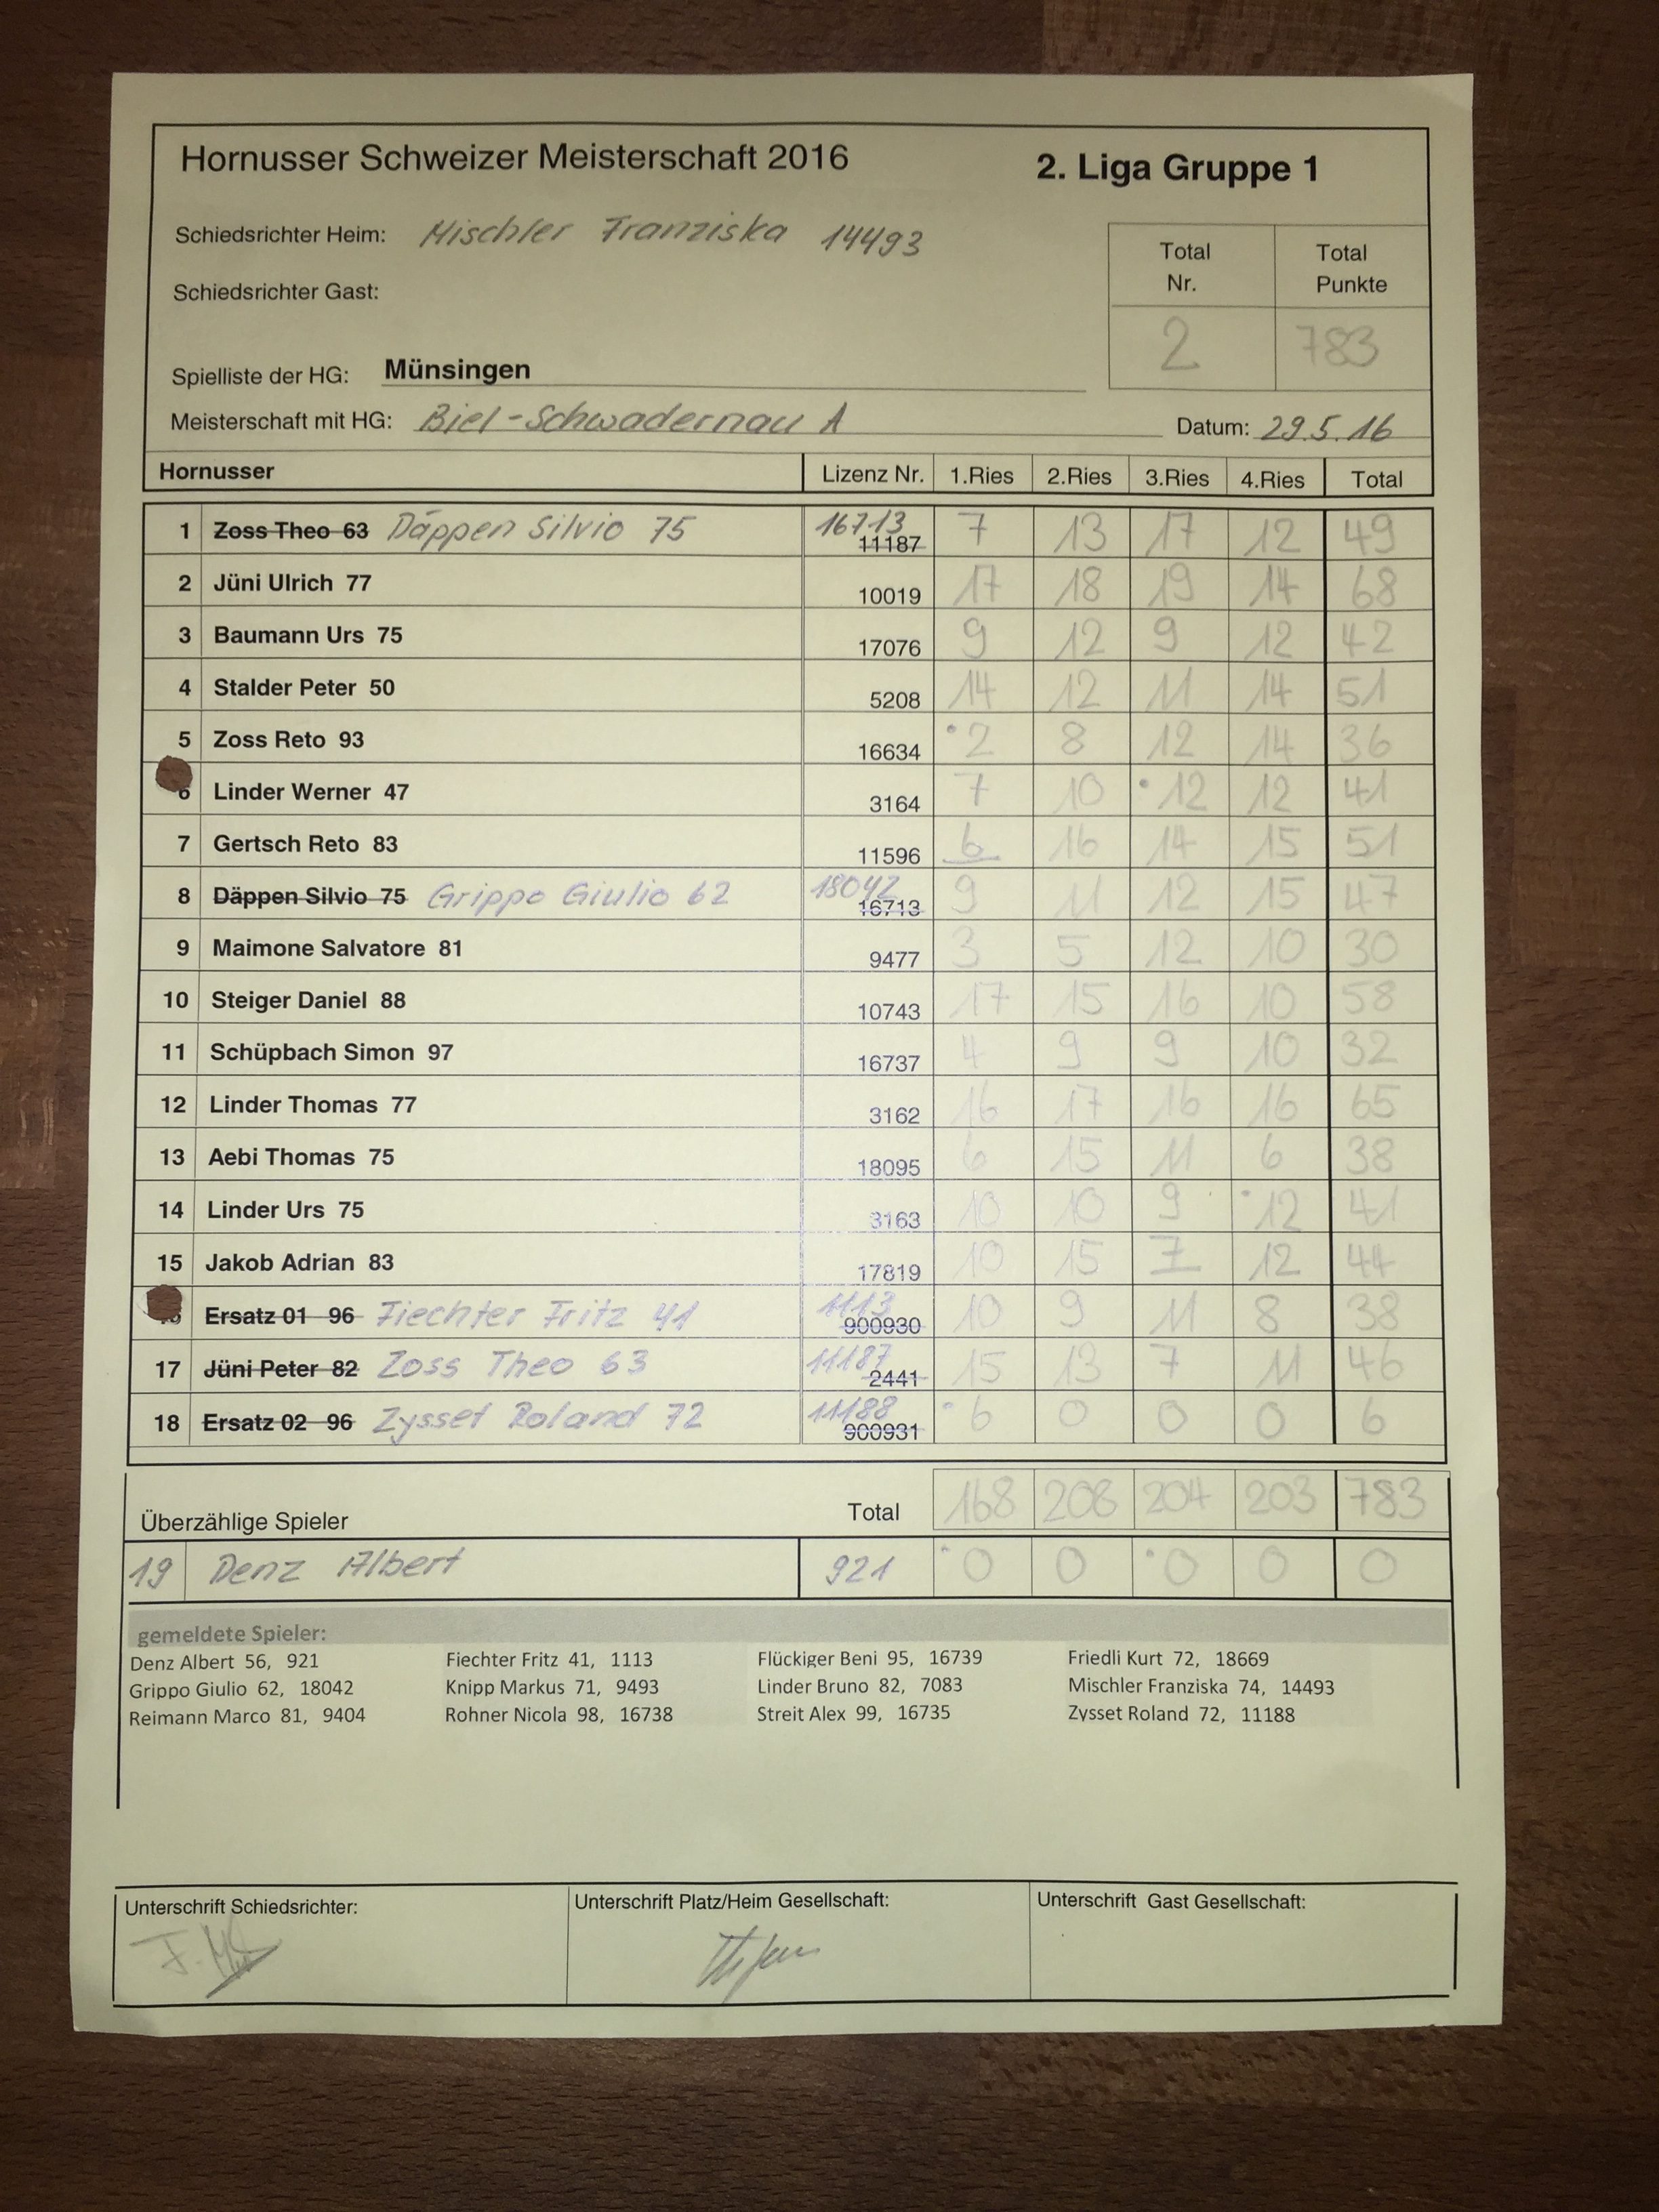 Hornusser Schweizer Meisterschaft 2016 2. Liga Gruppe 1
Schiedsrichter Heim: Mischler Franziska 14493
Total Nr. Total Punkte
Schiedsrichter Gast:
2 783
Spielliste der HG: Münsingen
Meisterschaft mit HG: Biel-Schwadernau A Datum: 29.5.16
Hornusser Lizenz Nr. 1.Ries 2.Ries 3.Ries 4.Ries Total
1 Zoss Theo 63 Däppen Silvio 75 16713 11187 7 13 17 12 49
2 Jüni Ulrich 77 10019 17 18 19 14 68
3 Baumann Urs 75 17076 9 12 9 12 42
4 Stalder Peter 50 5208 14 12 11 14 51
5 Zoss Reto 93 16634 2 8 12 14 36
6 Linder Werner 47 3164 7 10 12 12 41
7 Gertsch Reto 83 11596 6 16 14 15 51
8 Däppen Silvio 75 Grippo Giulio 62 18042 16713 9 11 12 15 47
9 Maimone Salvatore 81 9477 3 5 12 10 30
10 Steiger Daniel 88 10743 17 15 16 10 58
11 Schüpbach Simon 97 16737 4 9 9 10 32
12 Linder Thomas 77 3162 16 17 16 16 65
13 Aebi Thomas 75 18095 6 15 11 6 38
14 Linder Urs 75 3163 10 10 9 12 41
15 Jakob Adrian 83 17819 10 15 7 12 44
16 Ersatz 01 96 Fiechter Fritz 41 1113 900930 10 9 11 8 38
17 Jüni Peter 82 Zoss Theo 63 11187 2441 15 13 7 11 46
18 Ersatz 02 96 Zysset Roland 72 11188 900931 6 0 0 0 6
Überzählige Spieler Total 168 208 204 203 783
19 Denz Albert 921 0 0 0 0 0
gemeldete Spieler:
Denz Albert 56, 921 Fiechter Fritz 41, 1113 Flückiger Beni 95, 16739 Friedli Kurt 72, 18669
Grippo Giulio 62, 18042 Knipp Markus 71, 9493 Linder Bruno 82, 7083 Mischler Franziska 74, 14493
Reimann Marco 81, 9404 Rohner Nicola 98, 16738 Streit Alex 99, 16735 Zysset Roland 72, 11188
Unterschrift Schiedsrichter: Unterschrift Platz/Heim Gesellschaft: Unterschrift Gast Gesellschaft: